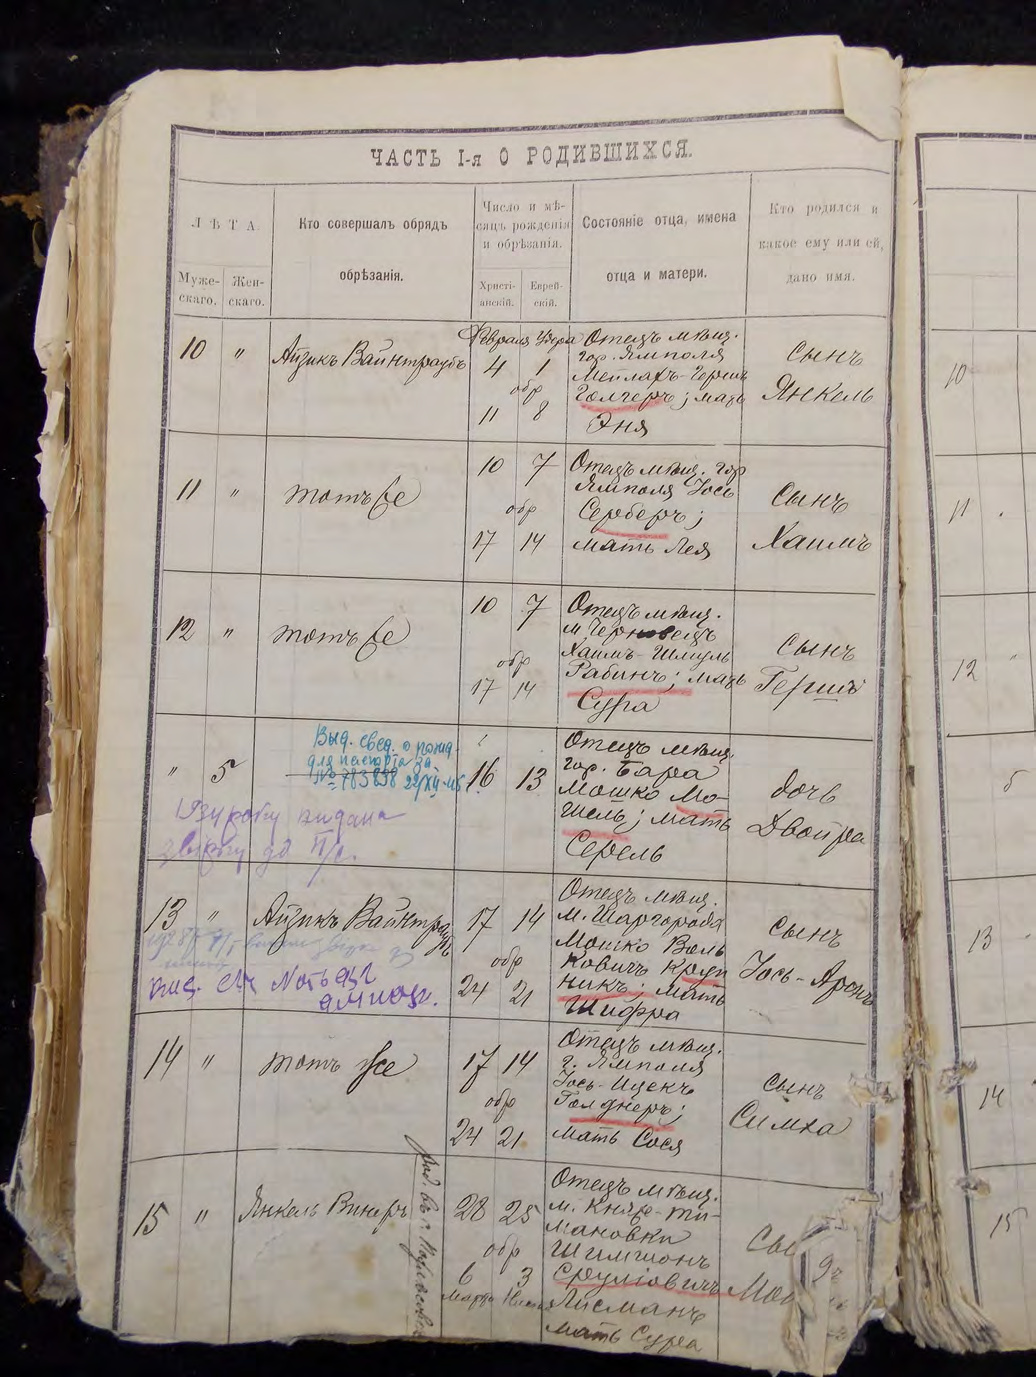 ЧАСТЬ I-я О РОДИВШИХСЯ.
ЛѢТА.
Муже-
скаго.
Жен-
скаго.
Кто совершалъ обрядъ
обрѣзанія.
Число и мѣ-
сяцъ рожденія
и обрѣзанія.
Христі-
анскій.
Еврей-
скій.
Состояніе отца, имена
отца и матери.
Кто родился и
какое ему или ей,
дано имя.
10 "
Айзикъ Вайнтраубъ
Февраля Адара
4 1
обр
11 8
Отецъ мѣщ.
гор. Ямполя
Мейлахъ-Гершъ
Голчеръ; мать
Эня
сынъ
Янкель
11 "
тотъ же
10 7
обр
17 14
Отецъ мѣщ. гор
Ямполя Іось
Серберъ;
мать Лея
сынъ
Хаимъ
12 "
тотъ же
10 7
обр
17 14
Отецъ мѣщ.
м. Черновецъ
Хаимъ-Шмуль
Рабинъ; мать
Сура
сынъ
Гершъ
" 5
Выд. свед. о рожд
для паспорта за
№ 783838
видана
до п/с.
16 13
Отецъ мѣщ.
гор. Бара
Мошко Мо-
гиль; мать
Серель
дочь
Двойра
13 "
Айзикъ Вайнтраубъ
17 14
обр
24 21
Отецъ мѣщ.
м. Шаргорода
Мошко Воль
ковичъ Круп
никъ; мать
Шифра
сынъ
Іось-Аронъ
14 "
тотъ же
17 14
обр
24 21
Отецъ мѣщ.
г. Ямполя
Іось-Ицекъ
Голднеръ;
мать Сося
сынъ
Симха
15 "
Янкель Винеръ
28 25
обр
6 3
Марта
Отецъ мѣщ.
м. Княже-Ти-
мановки
Шимшонъ
Сруліовичъ
Лисманъ
мать Сура
10
11
12
5
13
14
15